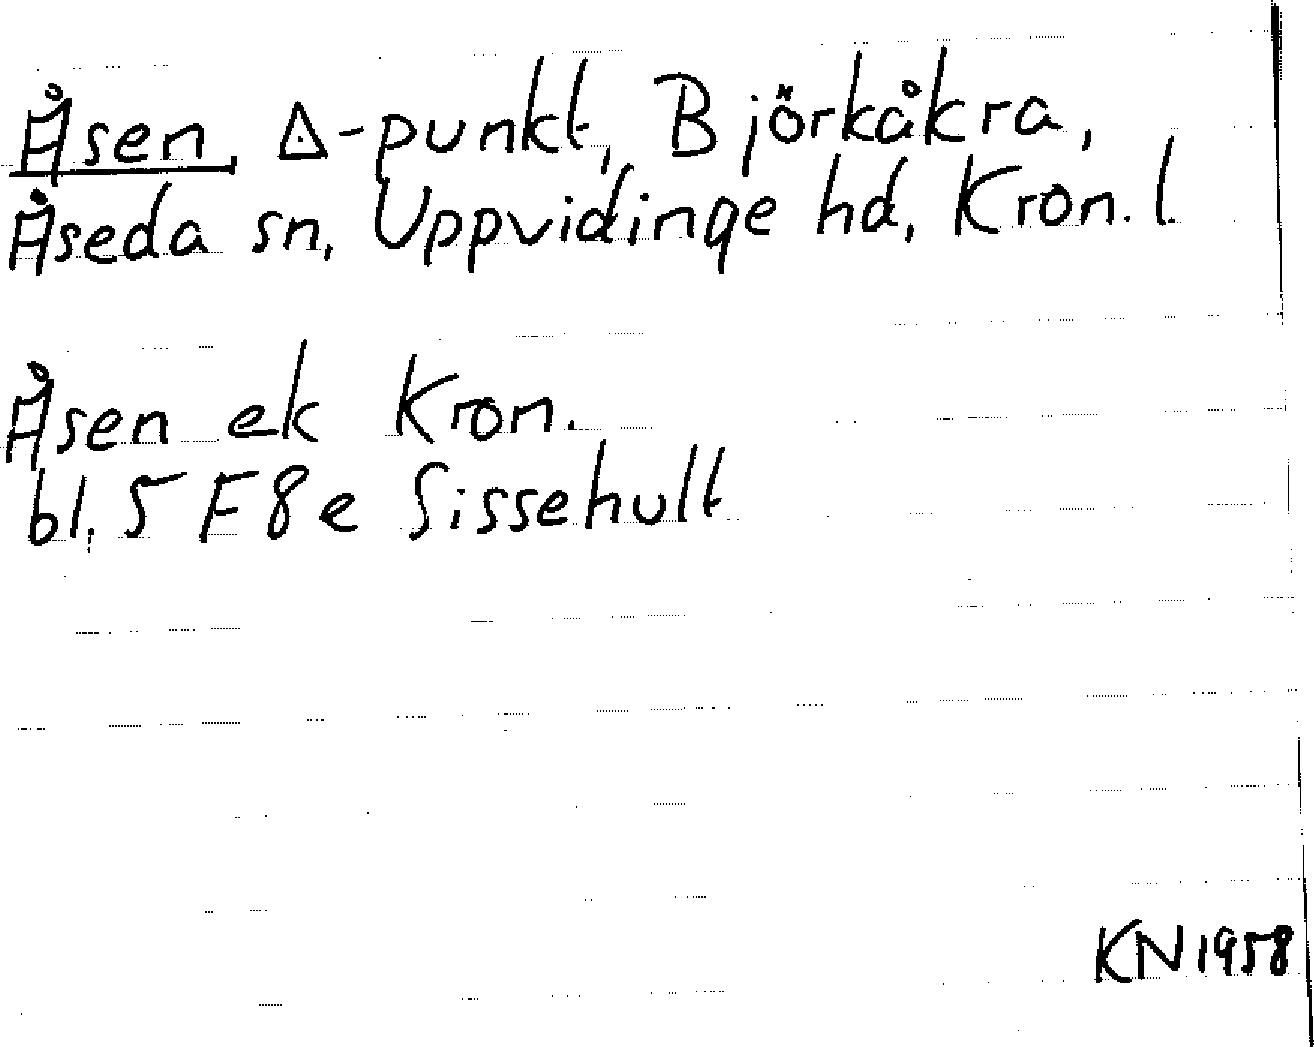 Åsen, ∆-punkt, Björkåkra,
Åseda sn, Uppvidinge hd, Kron. l.
Åsen ek Kron.
bl. 5 F 8 e Sissehult
KN 1958